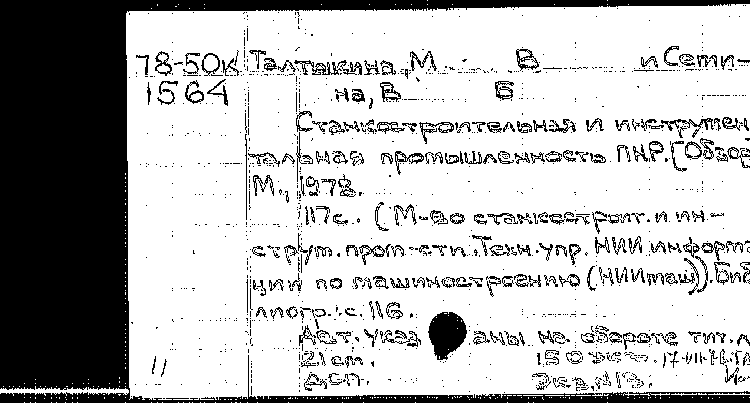 78-50к Талтыкина, М В и Сети-
1564 на, В Б
Станкостроительная и инструмен
тальная промышленность ПНР. [Обзор
М., 1978.
117с. (М-во станкостроит. и ин-
струм. пром-сти. Техн. упр. НИИ информа
ции по машиностроению (НИИмаш)). Биб
лиогр.: с. 116.
Авт. указ аны на обороте тит. л
21 см. 150 экз.
Дсп. Экз. N13.
11